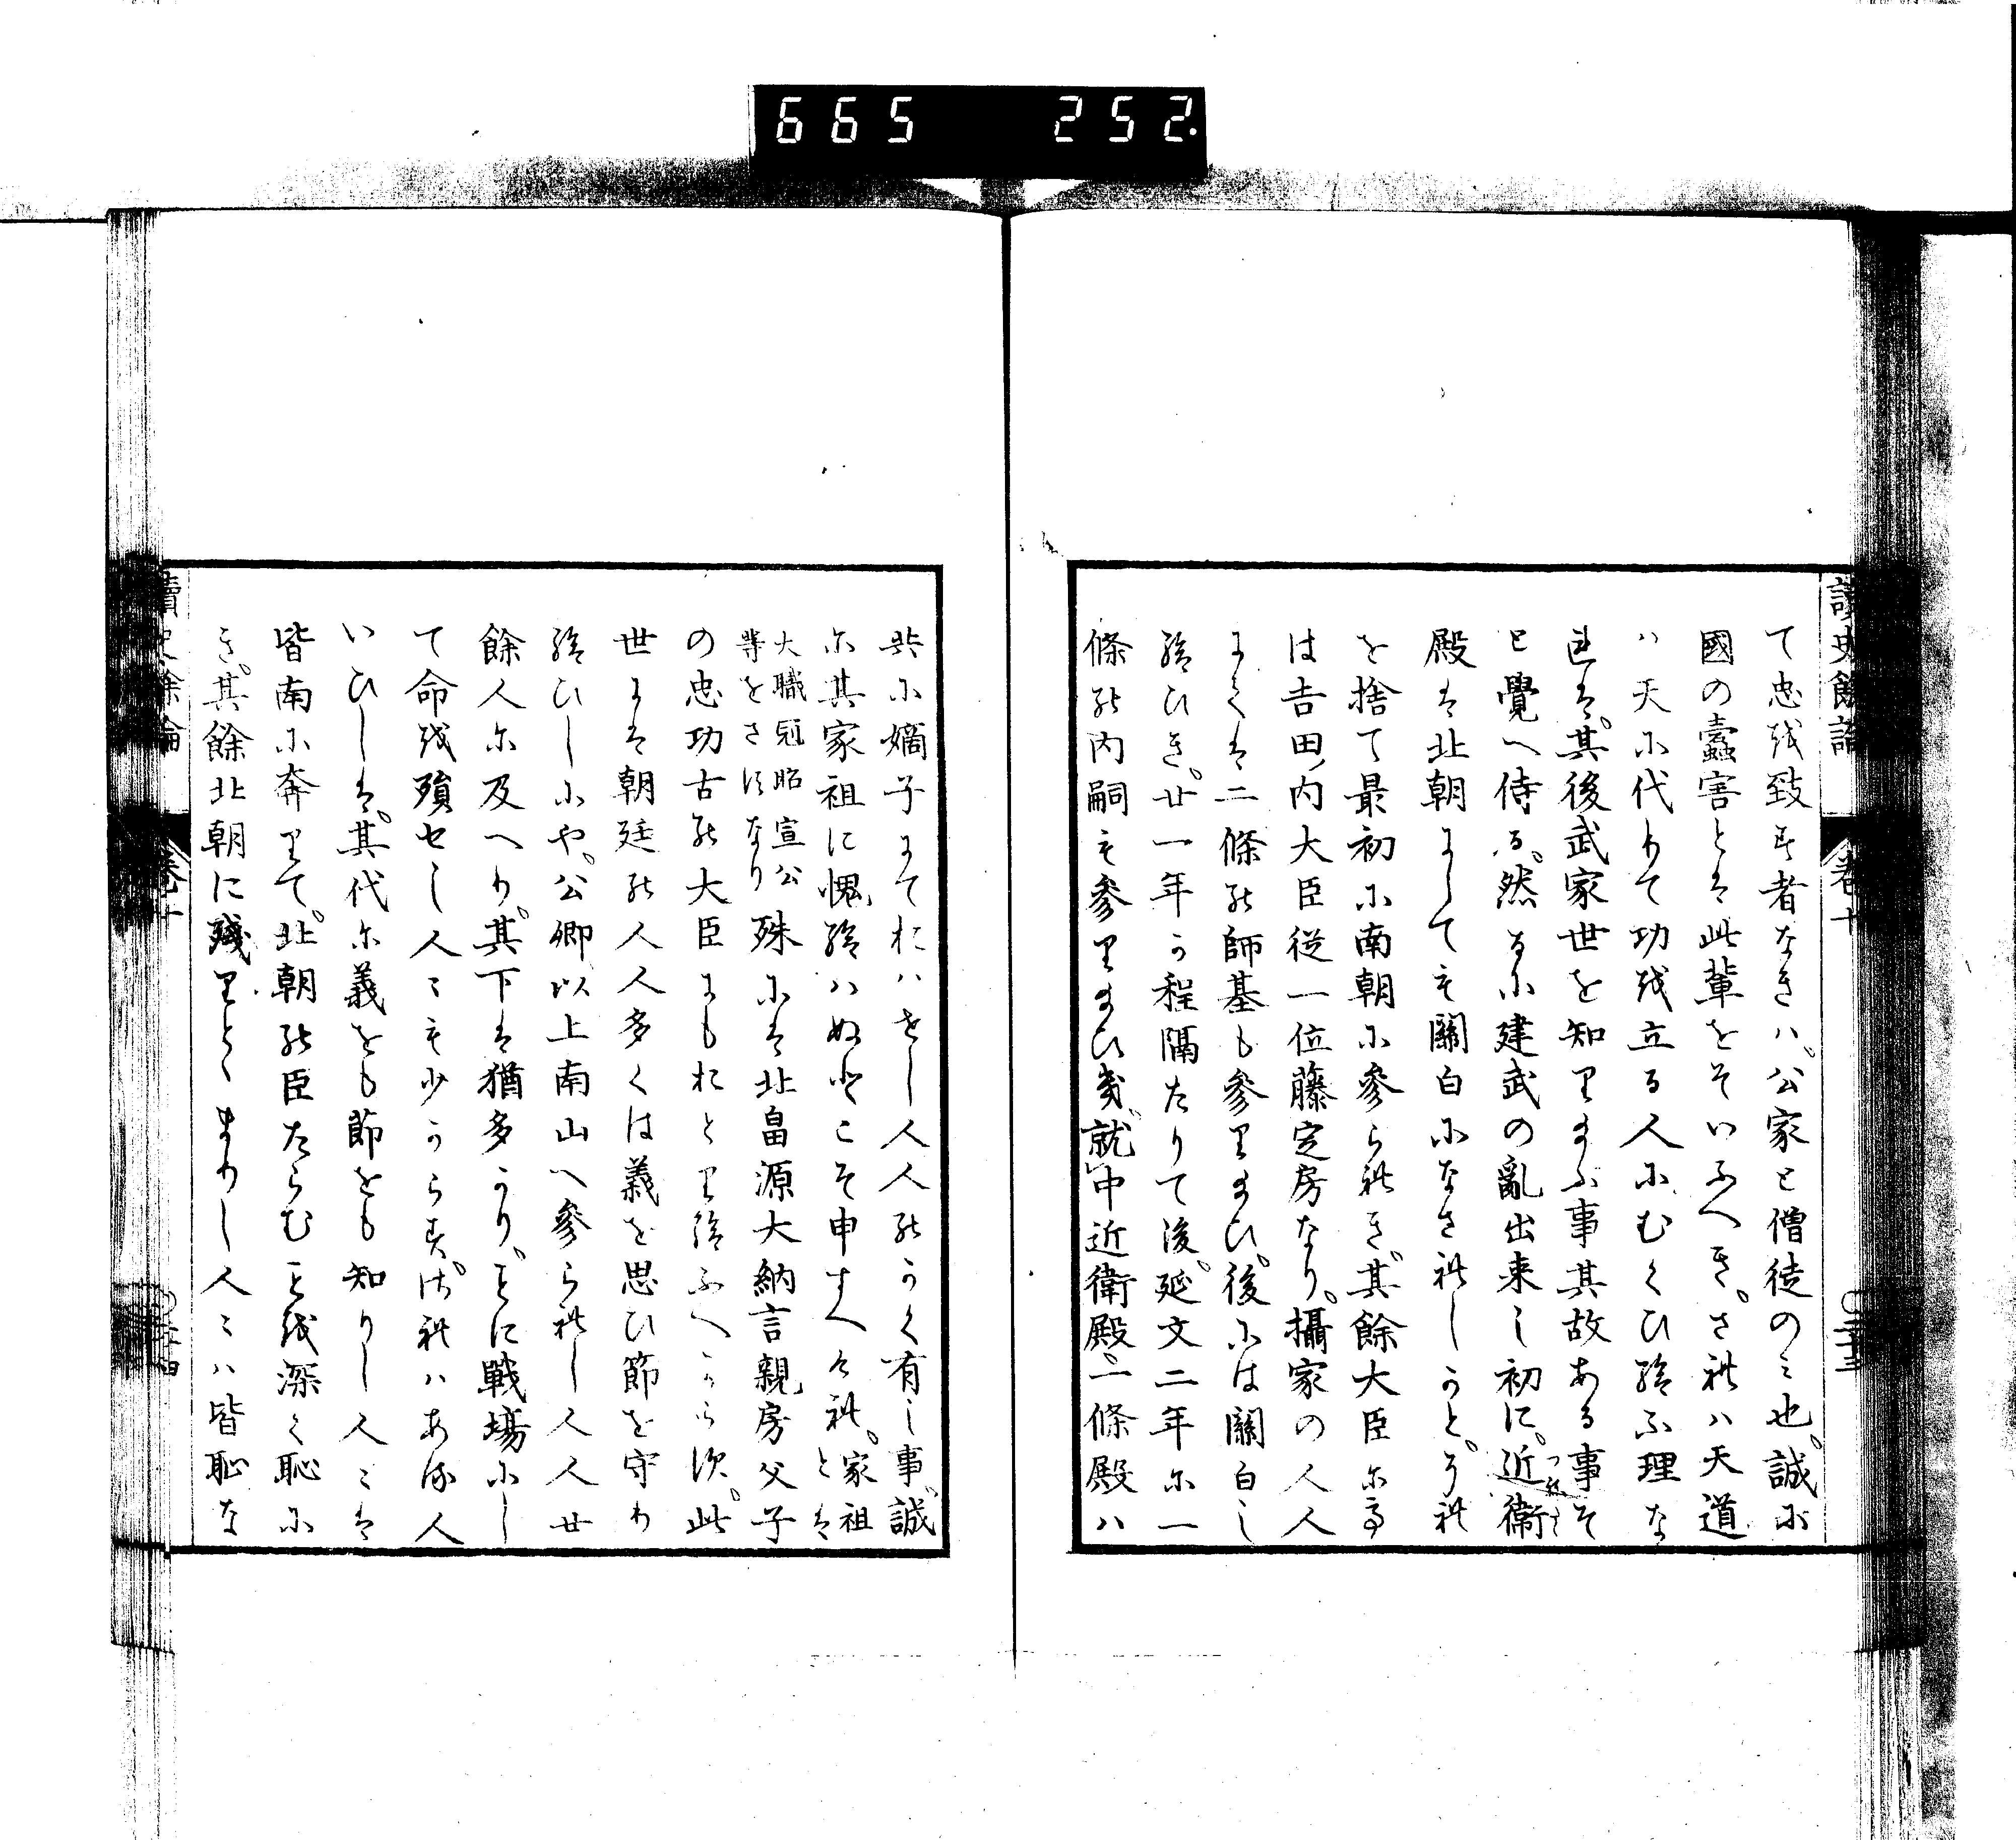 665 252.
讀史餘論 卷十
て忠を致す者なきハ公家と僧徒のミ也。誠に
國の蠹害とは此輩をそいふへき。されハ天道
ハ天に代りて功を立る人にむくひ給ふ理な
れは。其後武家世を知り玉ふ事其故ある事そ
と覺へ侍る。然るに建武の亂出來し初に。近衛
殿は北朝にしても關白になされしかと。それ
を捨て最初に南朝に參られき。其餘大臣に
は吉田内大臣從一位藤定房なり。攝家の人人
にては二條の師基も參り玉ひ。後には關白し
給ひき。廿一年か程隔たりて後。延文二年に一
條の内嗣も參り玉ひき。就中近衛殿二條殿ハ
共に嫡子にておはせし人人のかく有し事。誠
に其家祖に愧給ハぬとこそ申すへけれ。家祖とは
大職冠昭宣公
等をさすなり 殊に北畠源大納言親房父子
の忠功古の大臣にもおとり給ふへからす。此
世には朝廷の人人多くは義を思ひ節を守り
給ひしにや。公卿以上南山へ參られし人人廿
餘人に及へり。其下は猶多かり。ことに戰場にし
て命を殞せし人ミも少からす。されハある人
いひしは。其代に義をも節をも知りし人ミは
皆南に奔りて。北朝の臣たらむことを深く恥に
き。其餘北朝に殘りとゝまりし人ミハ皆恥な
讀史餘論 卷十